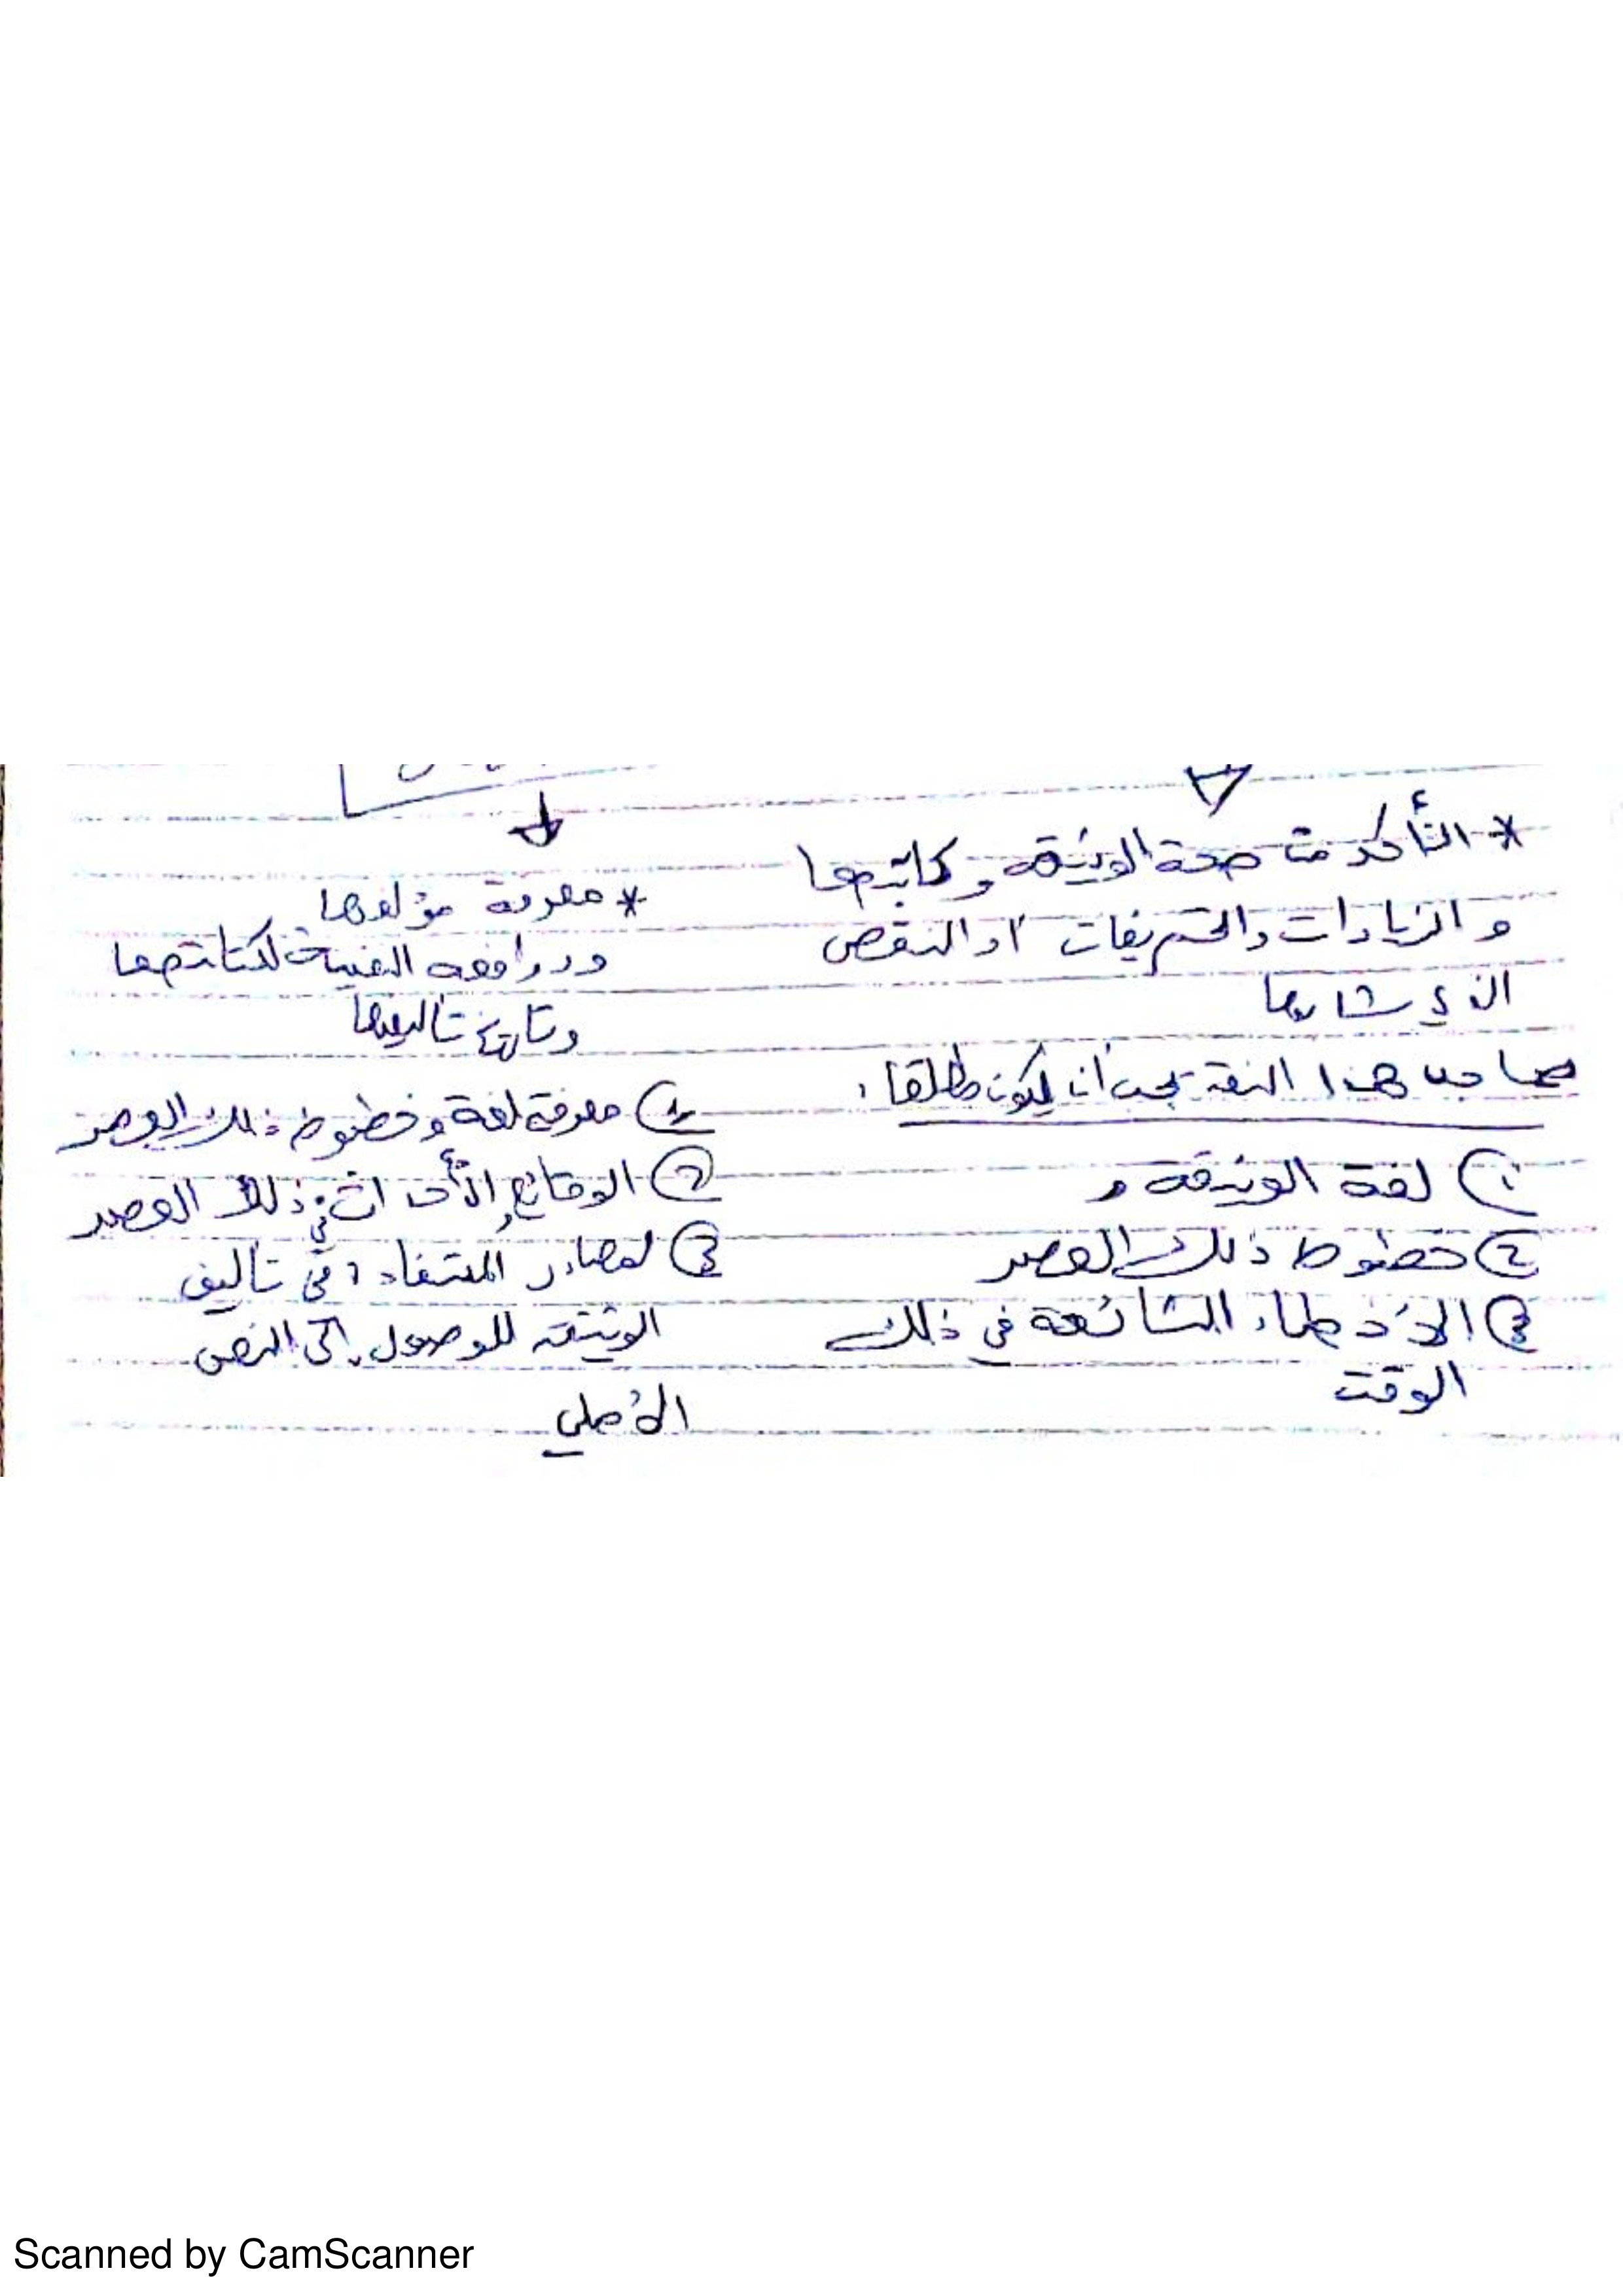 * التأكد من صحة الوثيقة وكاتبها
والزيادات والتحريفات أو النقص
الذي شابها
صاحب هذا النقد يجب أن يكون مطلقا:
① لغة الوثيقة و
② خطوط ذلك العصر
③ الأخطاء الشائعة في ذلك
الوقت
* معرفة مؤلفها
ودوافعه لكتابتها
وتاريخ تاليفها
① معرفة لغة وخطوط ذلك العصر
② الوقائع والأحداث في ذلك العصر
③ لمصادر المستفادة في تأليف
الوثيقة للوصول إلى النص
الأصلي
Scanned by CamScanner